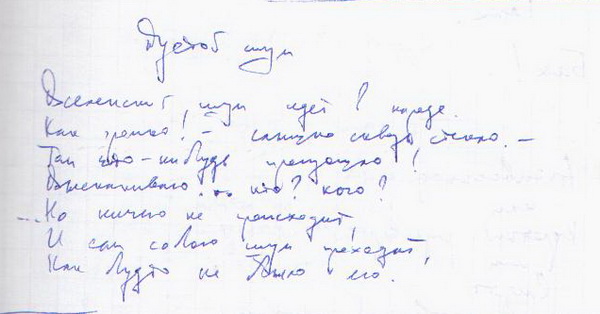 Пустой шум
шум идет в народе.
Как громко! – слышно сквозь стекло. –
Там что-нибудь произошло!
кто? кого?
... Но ничего не происходит,
И сам собою шум проходит,
Как будто не было его.